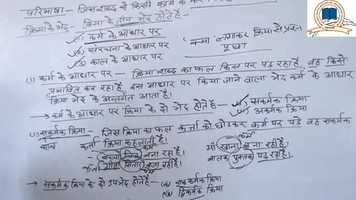 परिभाषा - जिस शब्द से किसी काम के कर
क्रिया के भेद - क्रिया के तीन भेद होते हैं -
(i) कर्म के आधार पर
(ii) संरचना के आधार पर
(iii) काल के आधार पर
'क्या' लगाकर क्रिया से प्रश्न पूछना
(1) कर्म के आधार पर - क्रिया शब्द का फल किस पर पड़ रहा है, वह किसे
प्रभावित कर रहा है, इस आधार पर किया जाने वाला भेद कर्म के आधार
क्रिया भेद के अन्तर्गत आता है।
→ कर्म के आधार पर क्रिया के दो भेद होते हैं - (i) सकर्मक क्रिया
(ii) अकर्मक क्रिया
(i) सकर्मक क्रिया - जिस क्रिया का फल कर्त्ता को छोड़कर कर्म पर पड़े वह सकर्मक
क्रिया कहलाती है।
कर्त्ता
माँ खाना बना रही है।
बालक पुस्तक पढ़ रहा है।
→ सकर्मक क्रिया के दो उपभेद होते हैं - (i) एककर्मक क्रिया
(ii) द्विकर्मक क्रिया